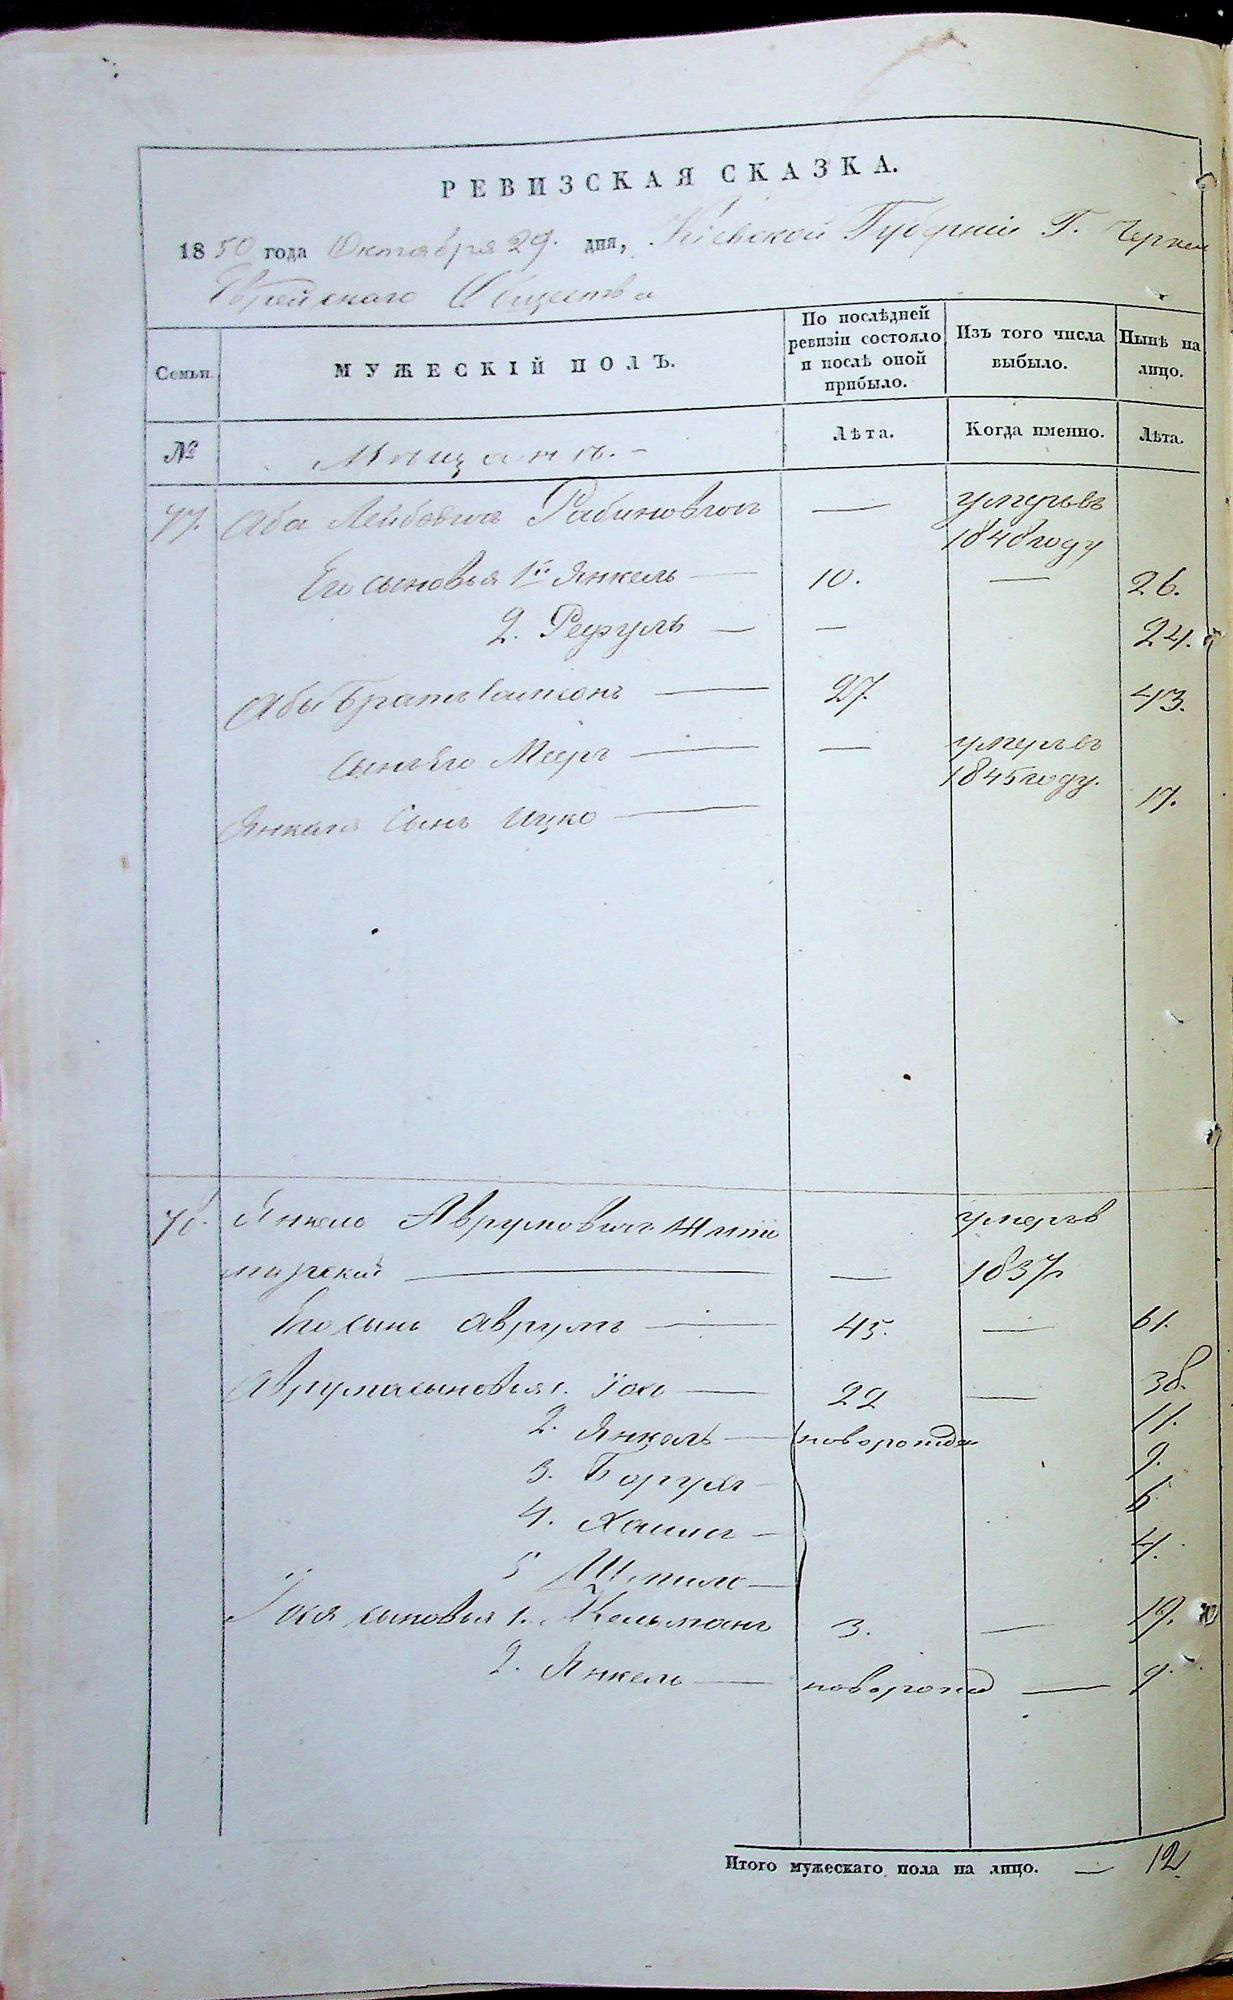 РЕВИЗСКАЯ СКАЗКА.
1850 года Октября 29. дня, Кіевской Губерніи Г. Черкас
Еврейскаго Общества
Семьи.
МУЖЕСКІЙ ПОЛЪ.
По послѣдней
ревизіи состояло
и послѣ оной
прибыло.
Изъ того числа
выбыло.
Нынѣ на
лицо.
№
Мѣщанъ. -
Лѣта.
Когда именно.
Лѣта.
77. Аба Лейбовичъ Рабиновичъ — умеръ въ
1848 году
Его сыновья 1й Янкель — 10. — 26.
2. Рефуль — — 24.
Абы братъ — 27. 43.
Сынъ его Мееръ — — умеръ въ
1845 году.
Янкеля сынъ Ицко — 17.
78. Янкель Аврумовичъ Жито умеръ в
мирскій — — 1837
Его сынъ Аврумъ — 45. — 61.
Аврума сыновья 1. — 22 — 38.
2. Янкель — новорожден 11.
3. Борухъ — 9.
4. — 6
5 Шмилъ — 4.
сыновья 1. Кельманъ 3. — 19.
2. Янкель — новорожд — 9.
Итого мужескаго пола на лицо. — 12